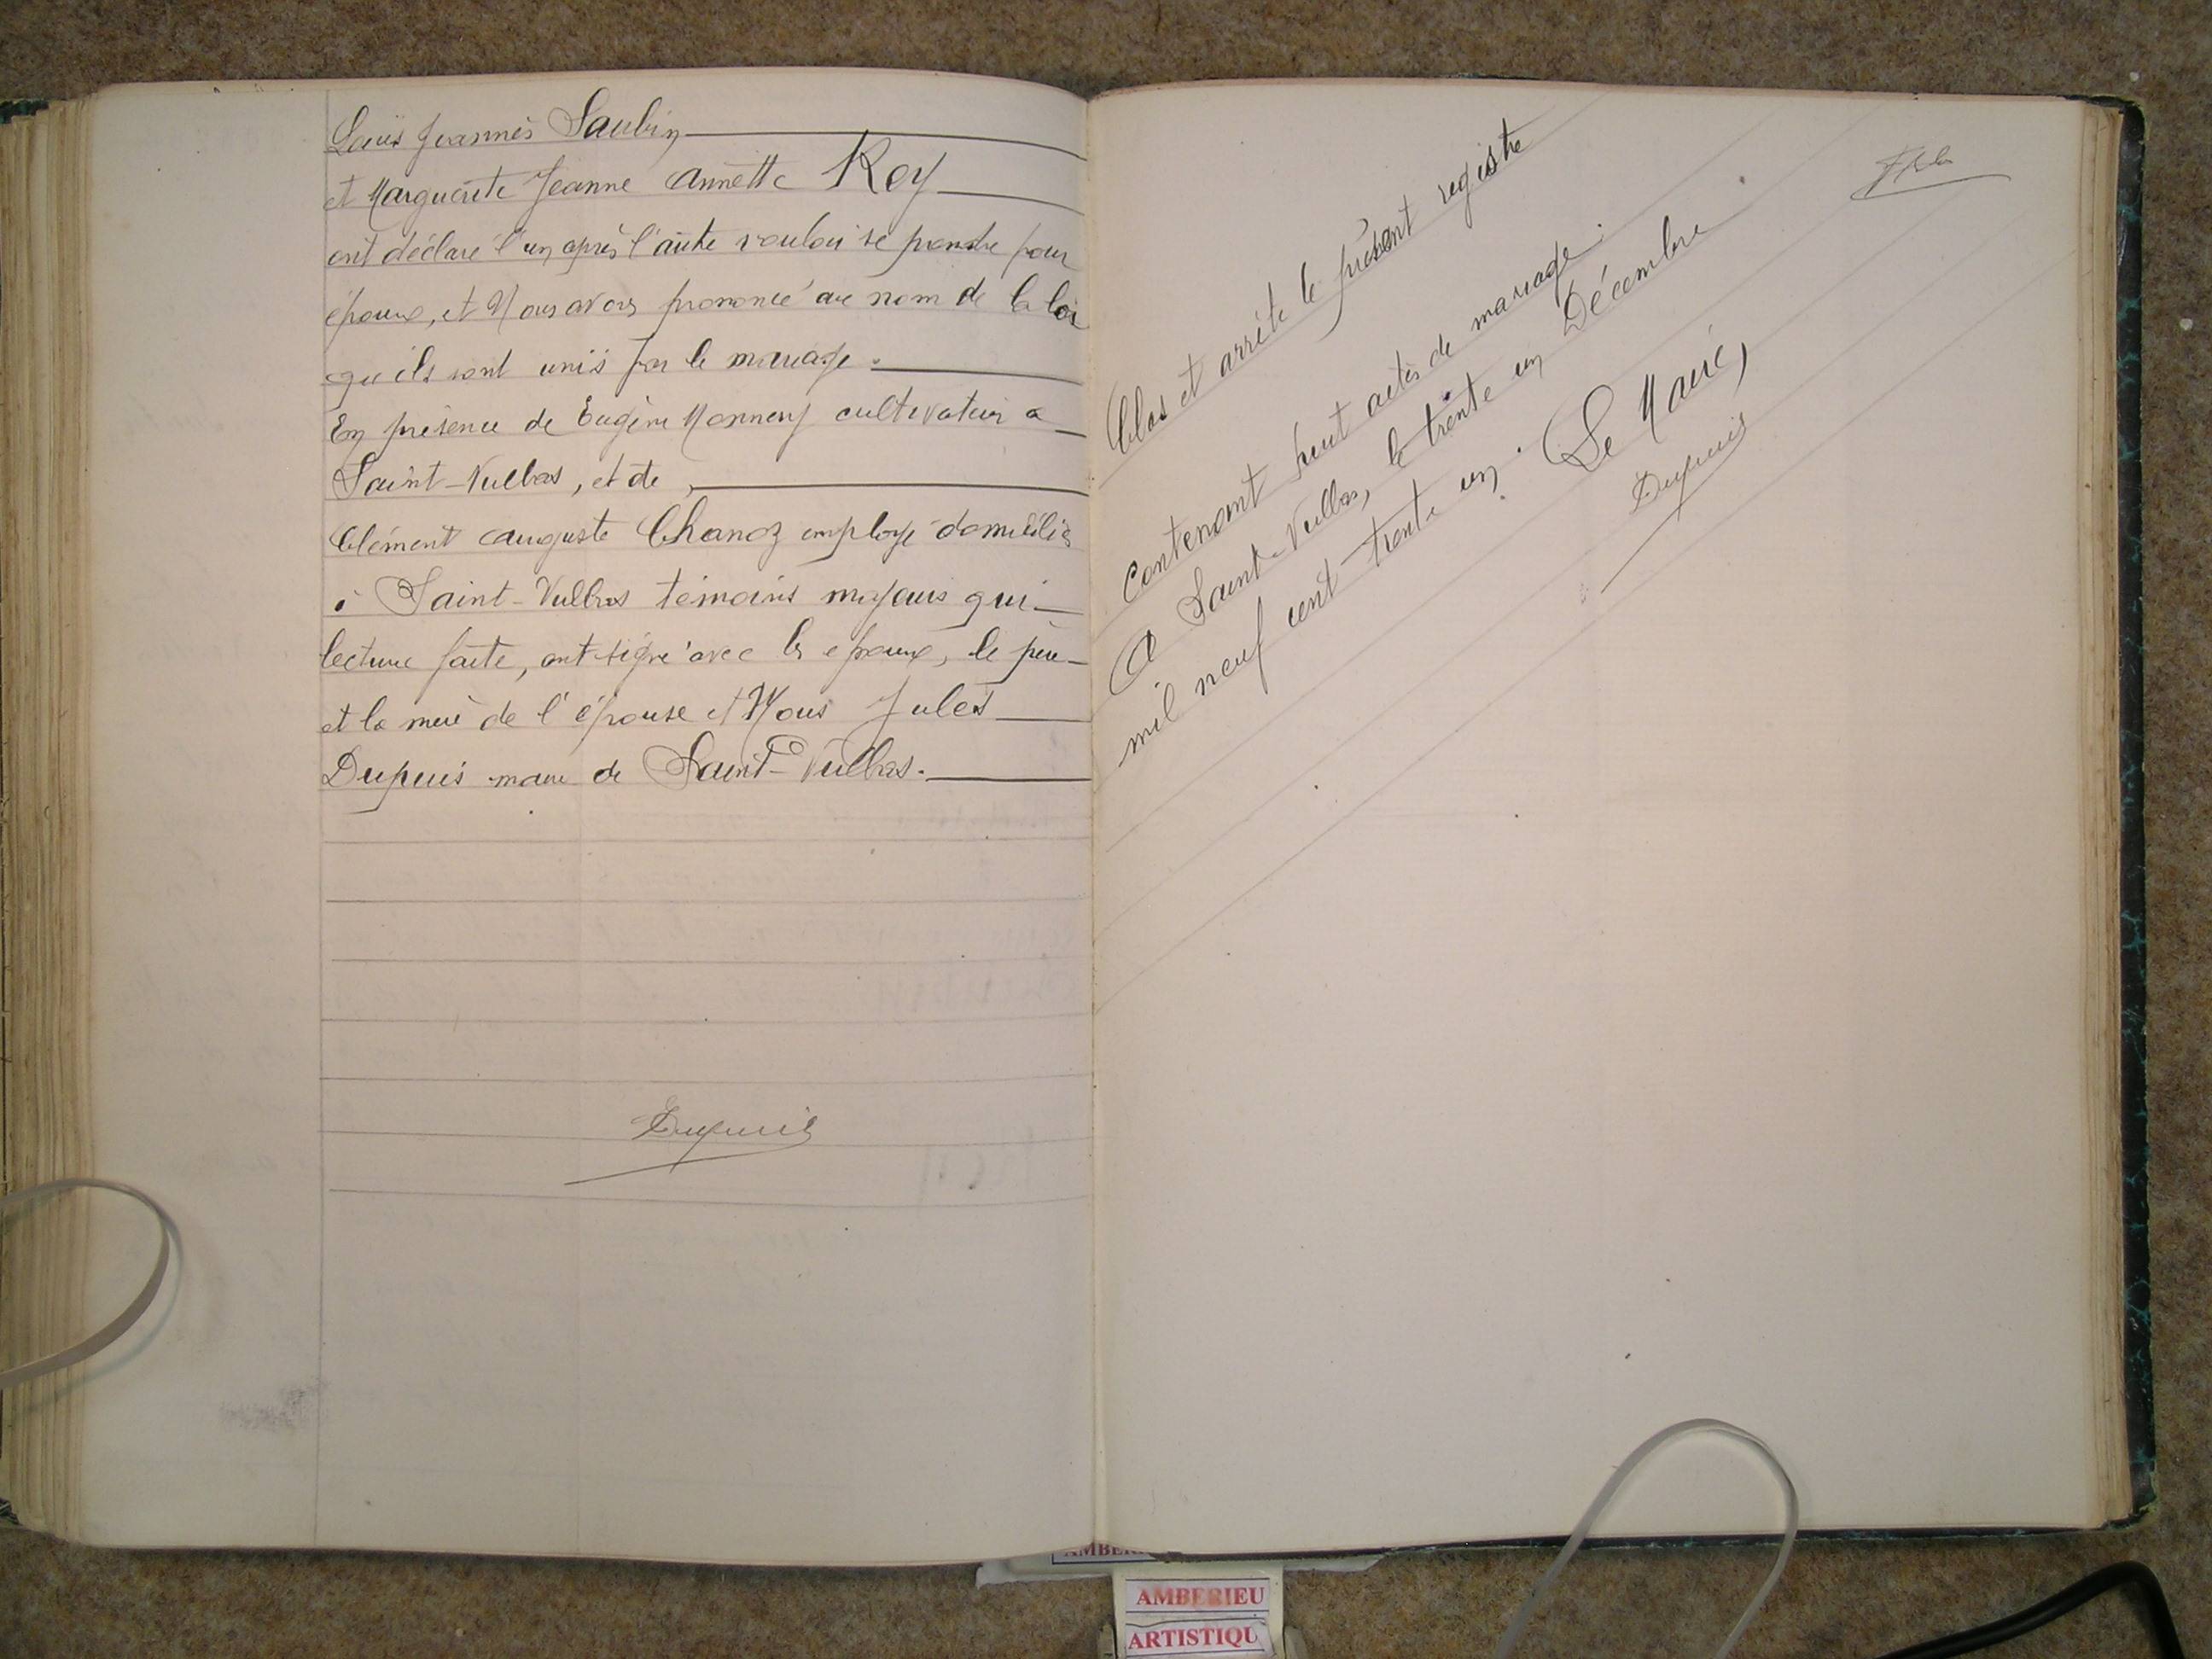 Louis Joannès Saubin
et Marguerite Jeanne Annette Rey
ont déclaré l'un après l'autre vouloir se prendre pour
époux, et Nous avons prononcé au nom de la loi
qu'ils sont unis par le mariage.
En présence de Eugène Monnery cultivateur a
Saint-Vulbas, et de
Clément Auguste Chanoz employé domicilié
à Saint-Vulbas témoins majeurs qui
lecture faite, ont signé avec les époux, le père
et la mère de l'épouse et Nous Jules
Dupuis maire de Saint-Vulbas.
Dupuis
Clos et arrêté le présent registre
contenant huit actes de mariage.
A Saint-Vulbas, le trente un Décembre
mil neuf cent trente un. Le Maire,
Dupuis
AMBERIEU
ARTISTIQU